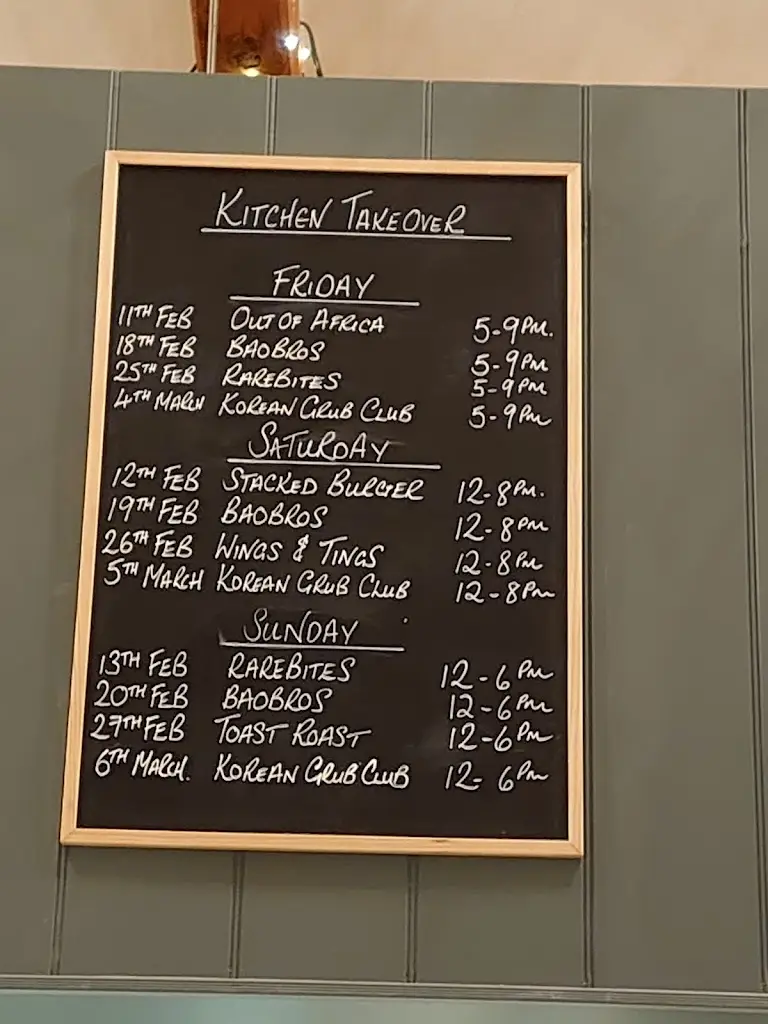 KITCHEN TAKEOVER
FRIDAY
11TH FEB OUT OF AFRICA 5-9PM.
18TH FEB BAOBROS 5-9PM
25TH FEB RAREBITES 5-9PM
4TH MARCH KOREAN GRUB CLUB 5-9PM
SATURDAY
12TH FEB STACKED BURGER 12-8PM.
19TH FEB BAOBROS 12-8PM
26TH FEB WINGS & TINGS 12-8PM
5TH MARCH KOREAN GRUB CLUB 12-8PM
SUNDAY
13TH FEB RAREBITES 12-6PM
20TH FEB BAOBROS 12-6PM
27TH FEB TOAST ROAST 12-6PM
6TH MARCH. KOREAN GRUB CLUB 12-6PM